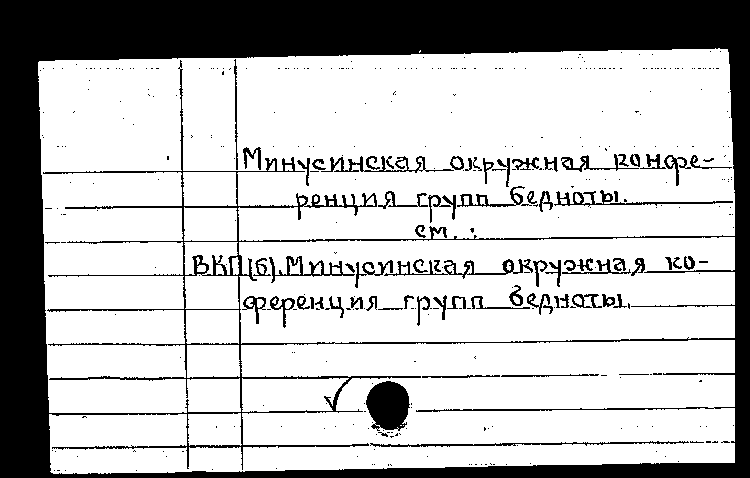 Минусинская окружная конфе-
ренция групп бедноты.
см. :
ВКП(б). Минусинская окружная ко-
ференция групп бедноты.